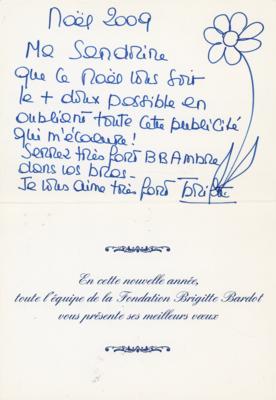 Noël 2009
Ma Sandrine
que ce Noël vous soit
le + doux possible en
oubliant toute cette publicité
qui m'écoeure!
Serrez très fort BBAmbre
dans vos bras-
Je vous aime très fort Brigitte
En cette nouvelle année,
toute l'équipe de la Fondation Brigitte Bardot
vous présente ses meilleurs vœux